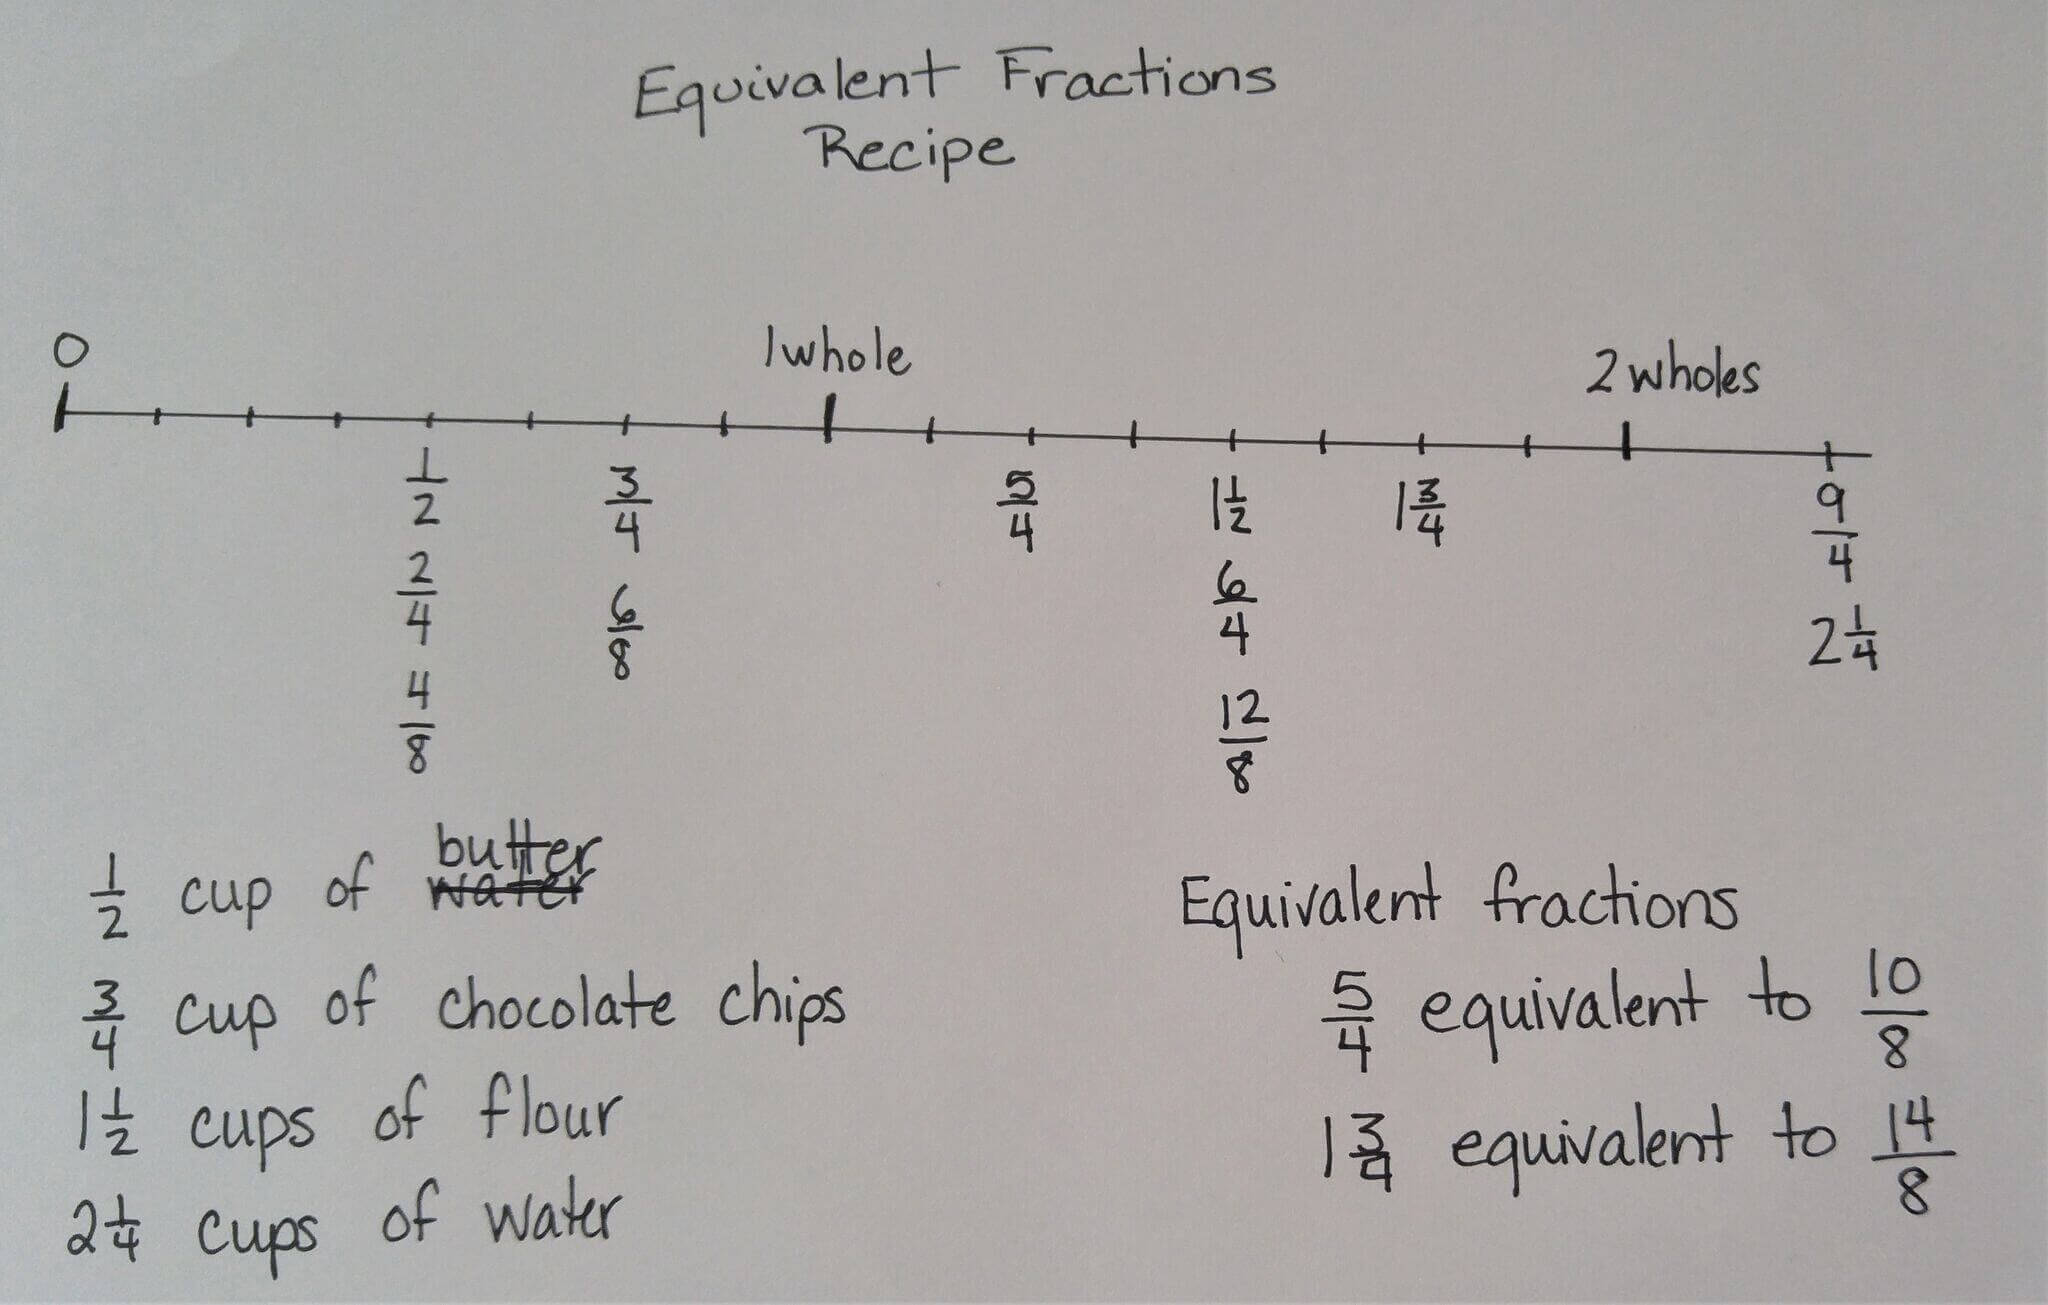 Equivalent Fractions
Recipe
0 1 whole 2 wholes
1/2 3/4 5/4 1 1/2 1 3/4 9/4
2/4 6/8 6/4 2 1/4
4/8 12/8
1/2 cup of butter ~~water~~
3/4 cup of chocolate chips
1 1/2 cups of flour
2 1/4 cups of water
Equivalent fractions
5/4 equivalent to 10/8
1 3/4 equivalent to 14/8